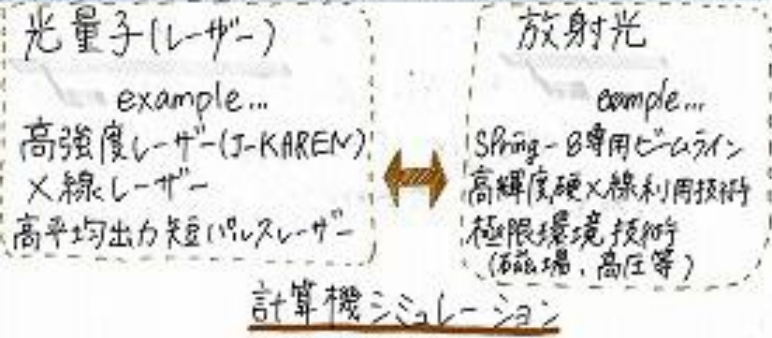 光量子(レーザー)
example...
高強度レーザー(J-KAREN)
X線レーザー
高平均出力短パルスレーザー
放射光
eample...
SPring-8専用ビームライン
高輝度硬X線利用技術
極限環境技術
(磁場、高圧等)
計算機シミュレーション